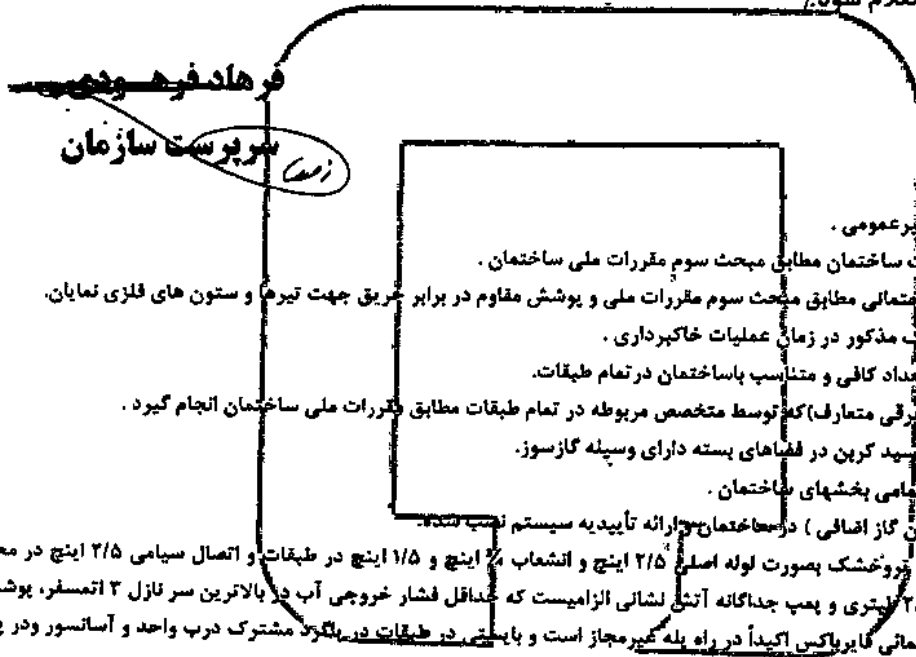 فرهاد فرهودی
سرپرست سازمان
عمومی .
ساختمان مطابق مبحث سوم مقررات ملی ساختمان .
مطابق مبحث سوم مقررات ملی و پوشش مقاوم در برابر حریق جهت تیرها و ستون های فلزی نمایان.
مذکور در زمان عملیات خاکبرداری .
کافی و متناسب باساختمان درتمام طبقات.
متعارف)که توسط متخصص مربوطه در تمام طبقات مطابق مقررات ملی ساختمان انجام گیرد .
کربن در فضاهای بسته دارای وسیله گازسوز.
بخشهای ساختمان .
گاز اضافی ) در ساختمان و ارائه تأییدیه سیستم نصب شده.
تروخشک بصورت لوله اصلی ۲/۵ اینچ و انشعاب اینچ و ۱/۵ اینچ در طبقات و اتصال سیامی ۲/۵ اینچ در
لیتری و پمپ جداگانه آتش نشانی الزامیست که حداقل فشار خروجی آب در بالاترین سر نازل ۳ اتمسفر،
فایرباکس اکیداً در راه پله غیرمجاز است و بایستی در طبقات در پاگرد مشترک درب واحد و آسانسور ودر